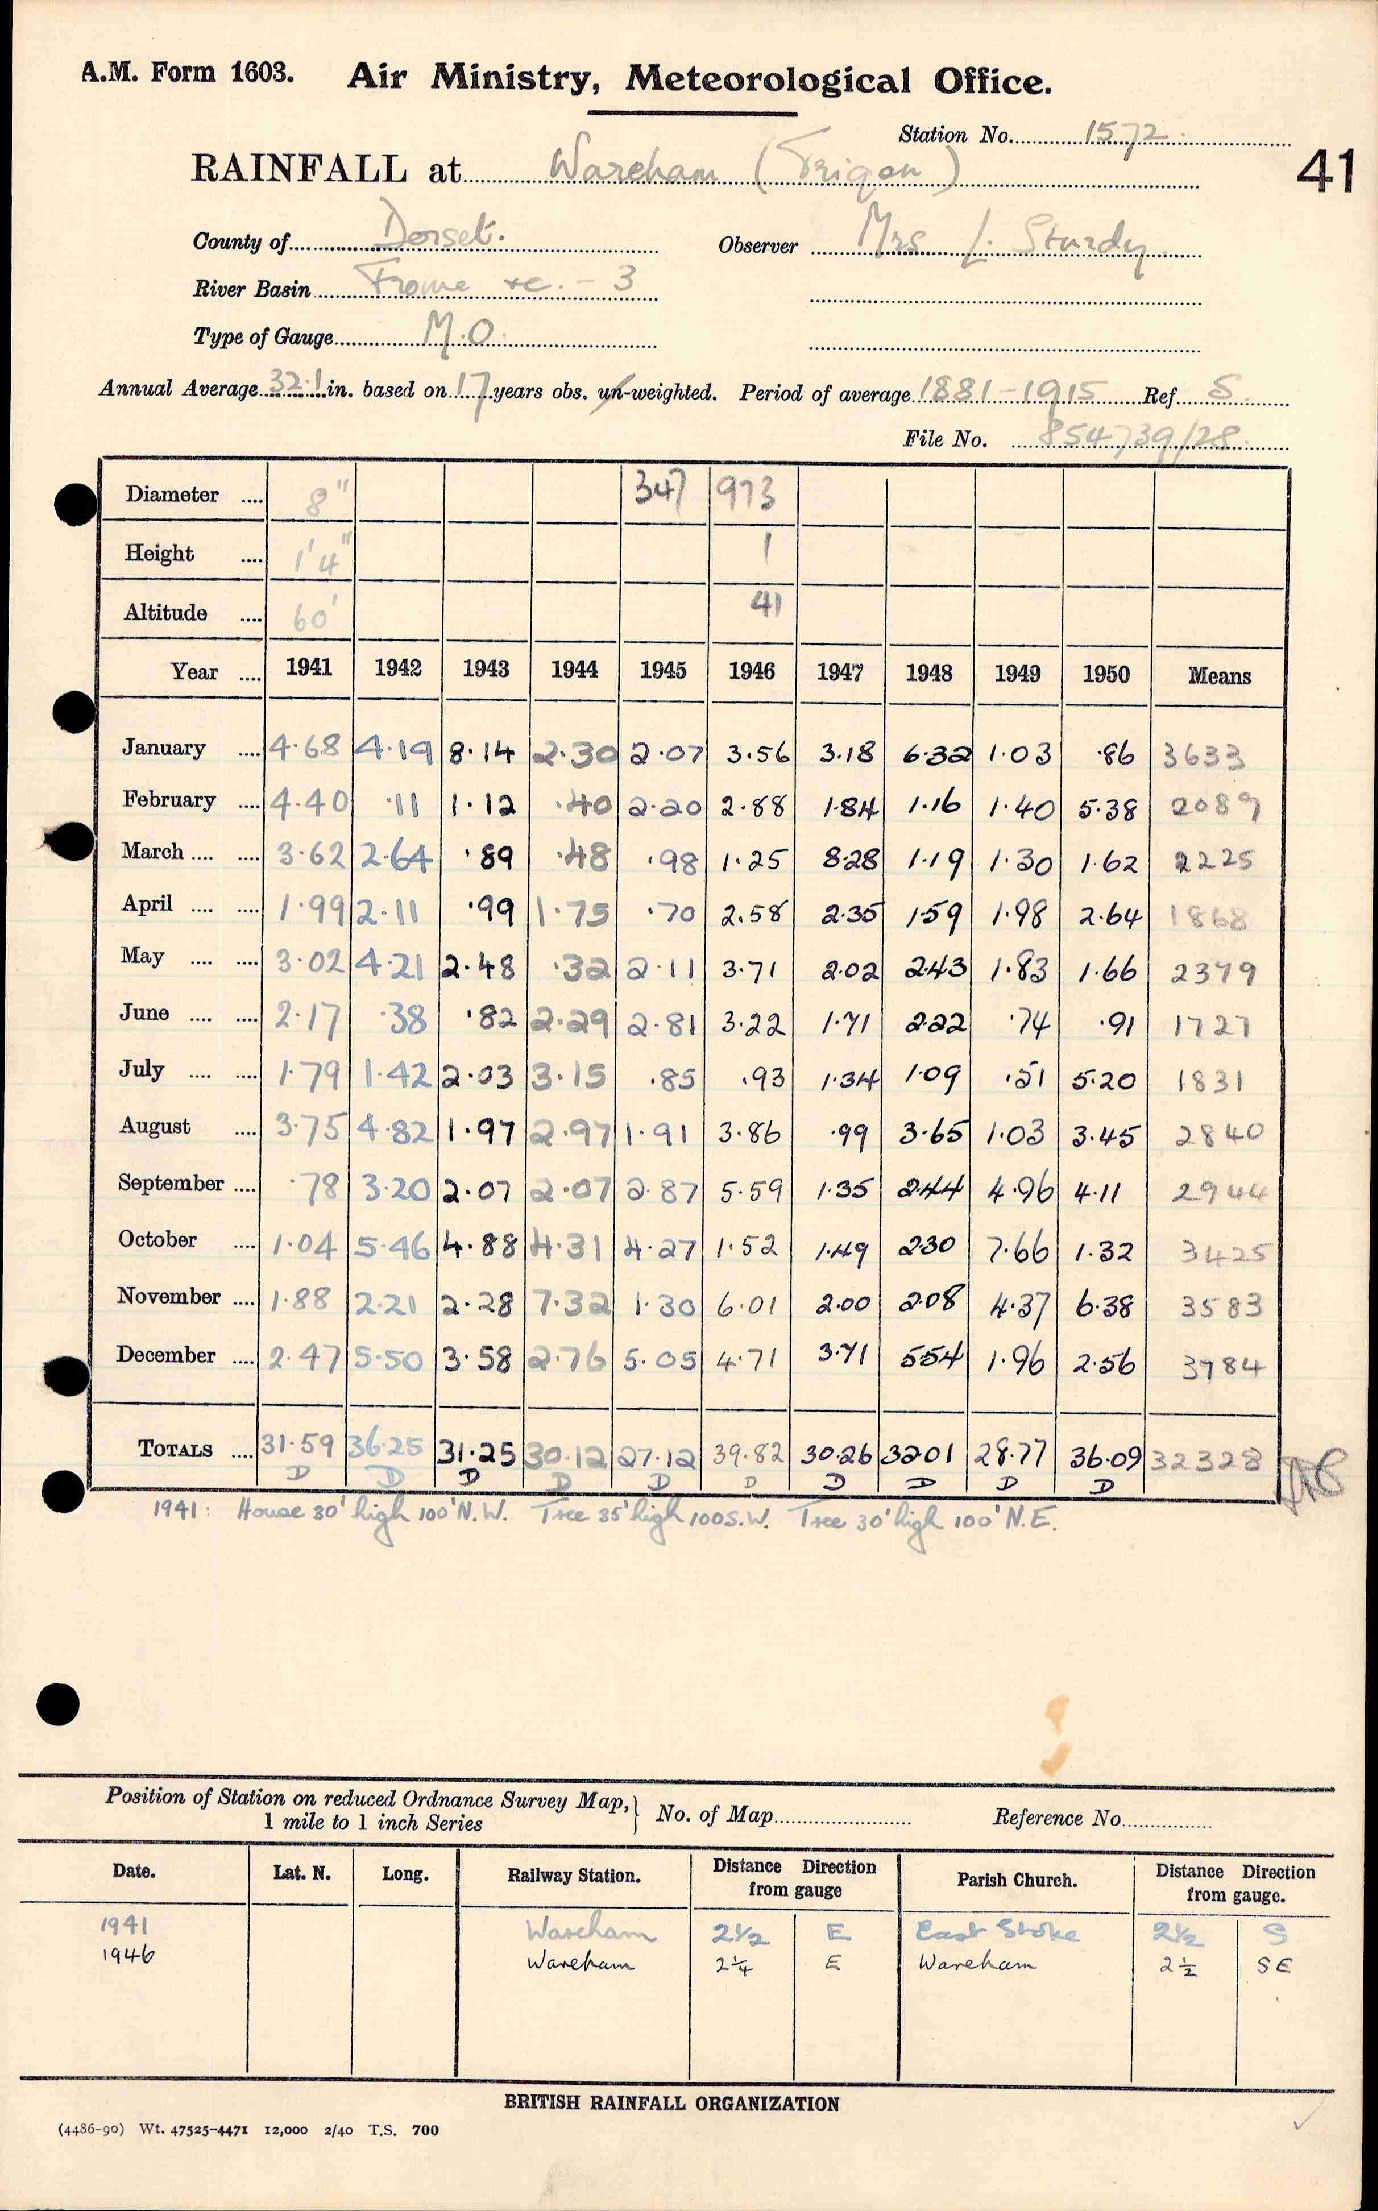 A.M. Form 1603. Air Ministry, Meteorological Office.
Station No. 1572.
41
RAINFALL at Wareham (Trigon)
County of Dorset. Observer Mrs L. Sturdy
River Basin Frome &c. - 3
Type of Gauge M.O.
Annual Average 32.1 in. based on 17 years obs. un-weighted. Period of average 1881-1915 Ref. S.
File No. 854739/28
Diameter .... 8" 347 973
Height .... 1'4" 1
Altitude .... 60' 41
Year .... 1941 1942 1943 1944 1945 1946 1947 1948 1949 1950 Means
January .... 4.68 4.19 8.14 2.30 2.07 3.56 3.18 6.32 1.03 .86 3633
February .... 4.40 .11 1.12 .40 2.20 2.88 1.84 1.16 1.40 5.38 2089
March .... .... 3.62 2.64 .89 .48 .98 1.25 8.28 1.19 1.30 1.62 2225
April .... .... 1.99 2.11 .99 1.75 .70 2.58 2.35 1.59 1.98 2.64 1868
May .... .... 3.02 4.21 2.48 .32 2.11 3.71 2.02 2.43 1.83 1.66 2379
June .... .... 2.17 .38 .82 2.29 2.81 3.22 1.71 2.22 .74 .91 1727
July .... .... 1.79 1.42 2.03 3.15 .85 .93 1.34 1.09 .51 5.20 1831
August .... 3.75 4.82 1.97 2.97 1.91 3.86 .99 3.65 1.03 3.45 2840
September .... .78 3.20 2.07 2.07 2.87 5.59 1.35 2.44 4.96 4.11 2944
October .... 1.04 5.46 4.88 4.31 4.27 1.52 1.49 2.30 7.66 1.32 3425
November .... 1.88 2.21 2.28 7.32 1.30 6.01 2.00 2.08 4.37 6.38 3583
December .... 2.47 5.50 3.58 2.76 5.05 4.71 3.71 5.54 1.96 2.56 3784
TOTALS .... 31.59 36.25 31.25 30.12 27.12 39.82 30.26 32.01 28.77 36.09 32328
D D D D D D D D D D
1941: House 30' high 100' N.W. Tree 35' high 100 S.W. Tree 30' high 100' N.E.
Position of Station on reduced Ordnance Survey Map,
1 mile to 1 inch Series
No. of Map
Reference No.
Date. Lat. N. Long. Railway Station. Distance Direction from gauge Parish Church. Distance Direction from gauge.
1941 Wareham 2½ E East Stoke 2½ S
1946 Wareham 2¼ E Wareham 2½ SE
BRITISH RAINFALL ORGANIZATION
(4486-90) Wt. 47525-4471 12,000 2/40 T.S. 700